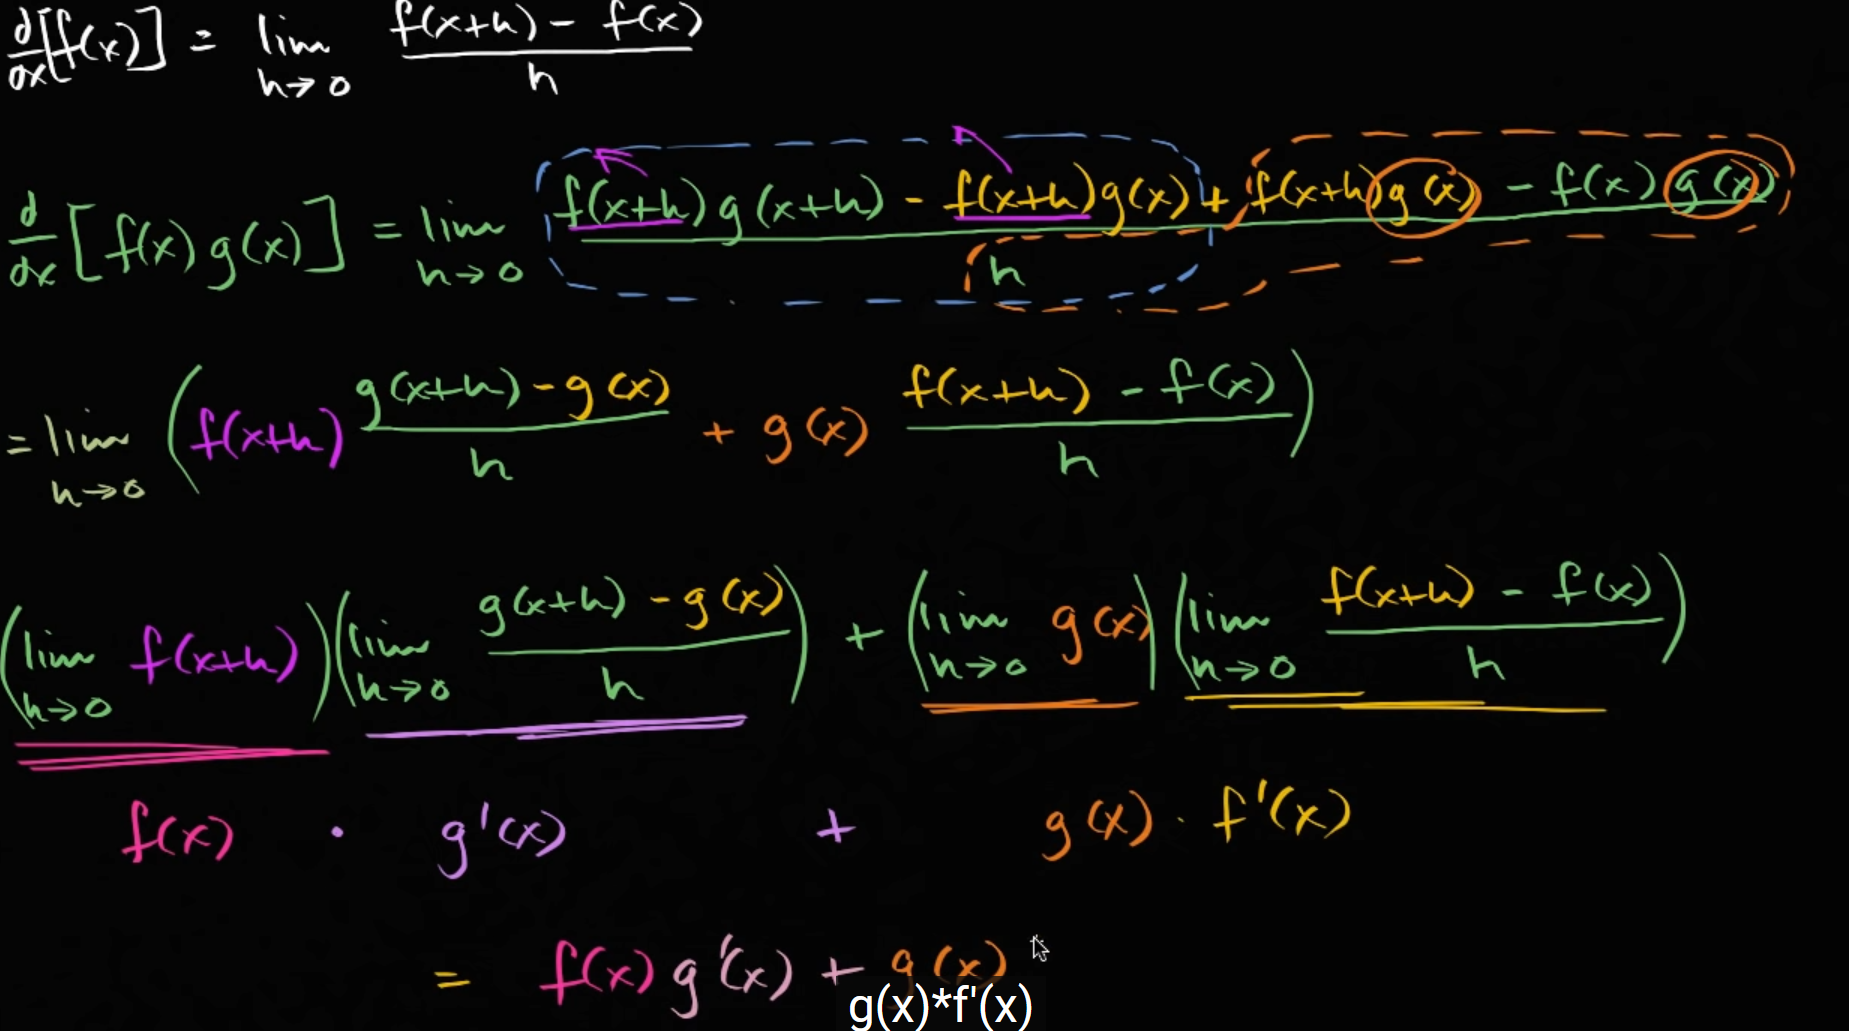 d/dx [f(x)] = lim h→0 (f(x+h) - f(x))/h
d/dx [f(x) g(x)] = lim h→0 (f(x+h) g(x+h) - f(x+h) g(x) + f(x+h) g(x) - f(x) g(x))/h
= lim h→0 (f(x+h) (g(x+h) - g(x))/h + g(x) (f(x+h) - f(x))/h)
(lim h→0 f(x+h)) (lim h→0 (g(x+h) - g(x))/h) + (lim h→0 g(x)) (lim h→0 (f(x+h) - f(x))/h)
f(x) · g'(x) + g(x) · f'(x)
= f(x) g'(x) + g(x)
g(x)*f'(x)